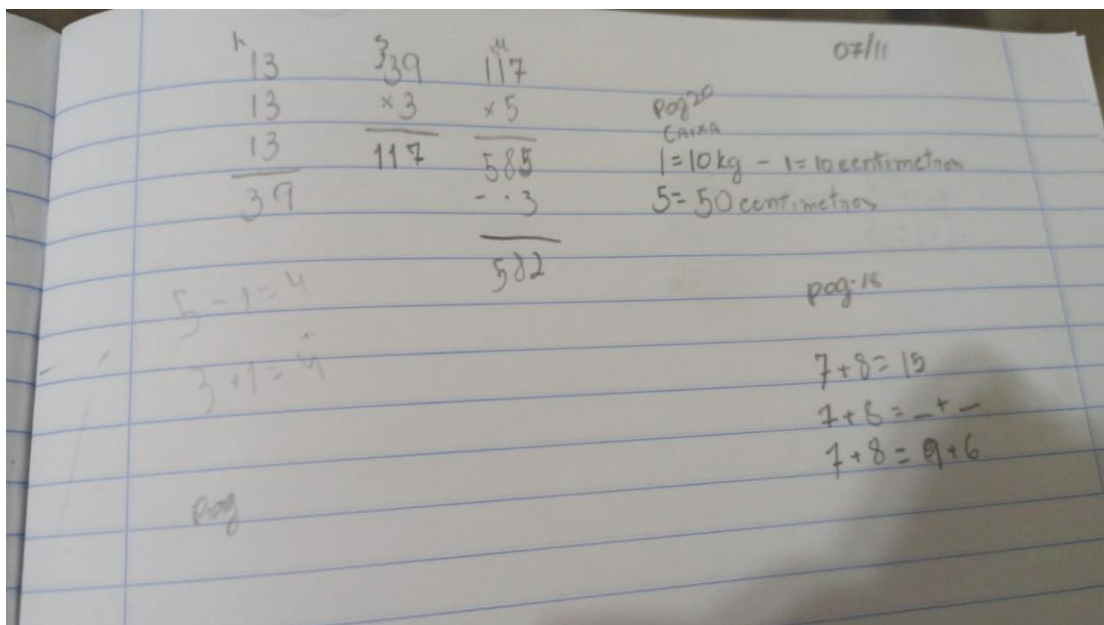 07/11
1
13
13
13
39
3
39
×3
117
4
117
×5
585
- 3
582
pag 20
CAIXA
1=10kg - 1=10 centimetros
5=50 centimetros
5-1=4
3+1=4
pag. 18
7+8=15
7+8=_+_
7+8=9+6
pag